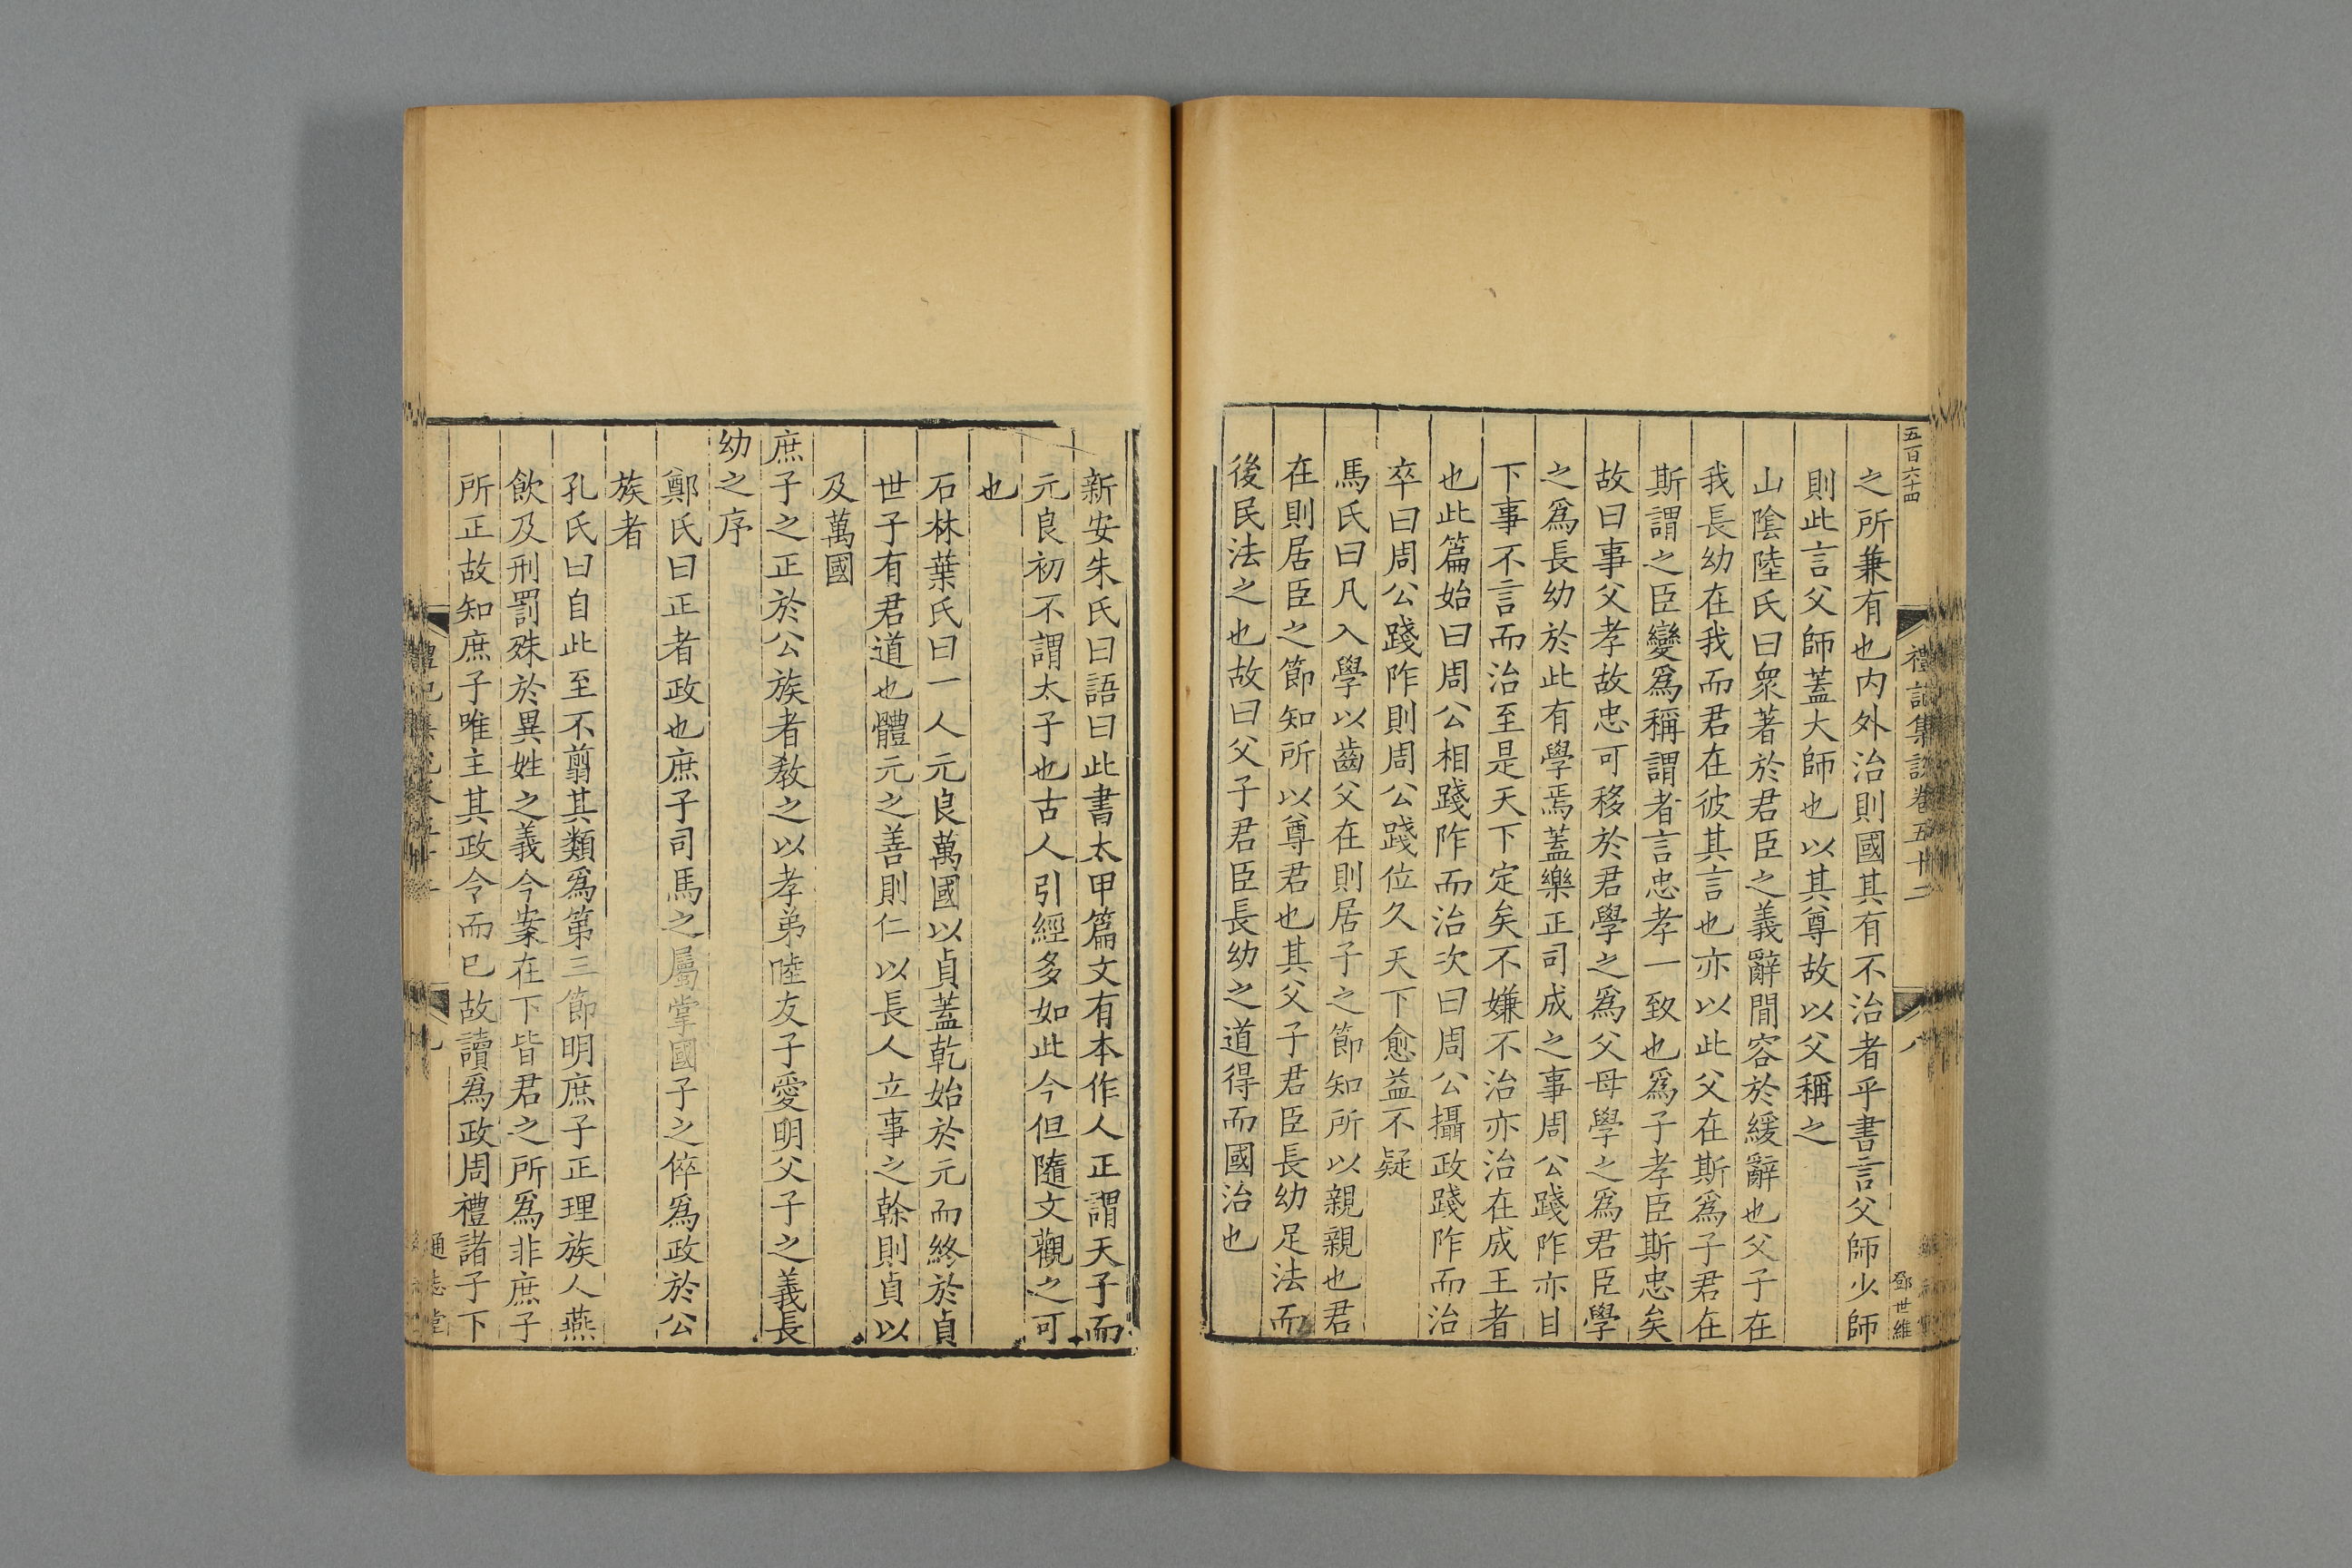 五百六十四
禮記集説卷五十二
八
鄧世維
之所兼有也内外治則國其有不治者乎書言父師少師
則此言父師蓋大師也以其尊故以父稱之
山隂陸氏曰衆著於君臣之義辭間容於緩辭也父子在
我長幼在我而君在彼其言也亦以此父在斯爲子君在
斯謂之臣變爲稱謂者言忠孝一致也爲子孝臣斯忠矣
故曰事父孝故忠可移於君學之爲父母學之爲君臣學
之爲長幼於此有學焉蓋樂正司成之事周公踐阼亦目
下事不言而治至是天下定矣不嫌不治亦治在成王者
也此篇始曰周公相踐阼而治次曰周公攝政踐阼而治
卒曰周公踐阼則周公踐位久天下愈益不疑
馬氏曰凡入學以齒父在則居子之節知所以親親也君
在則居臣之節知所以尊君也其父子君臣長幼足法而
後民法之也故曰父子君臣長幼之道得而國治也
新安朱氏曰語曰此書太甲篇文有本作人正謂天子而
元良初不謂太子也古人引經多如此今但隨文觀之可
也
石林葉氏曰一人元良萬國以貞蓋乾始於元而終於貞
世子有君道也體元之善則仁以長人立事之榦則貞以
及萬國
庶子之正於公族者教之以孝弟睦友子愛明父子之義長
幼之序
鄭氏曰正者政也庶子司馬之屬掌國子之倅爲政於公
族者
孔氏曰自此至不翦其類爲第三節明庶子正理族人燕
飲及刑罰殊於異姓之義今案在下皆君之所爲非庶子
所正故知庶子唯主其政令而已故讀爲政周禮諸子下
九
通志堂